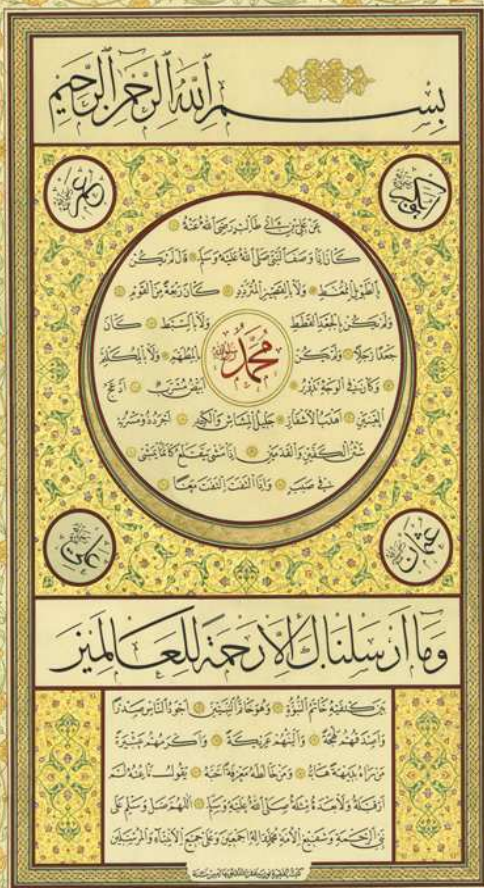 بسم الله الرحمن الرحيم
أبو بكر
عمر
عن علي بن أبي طالب رضي الله عنه
كان إذا وصف النبي صلى الله عليه وسلم قال لم يكن
بالطويل الممغط ولا بالقصير المتردد كان ربعة من القوم
ولم يكن بالجعد القطط ولا بالسبط كان
جعدا رجلا ولم يكن بالمطهم ولا بالمكلثم
محمد
وكان في الوجه تدوير أبيض مشرب أدعج
العينين أهدب الأشفار جليل المشاش والكتد أجرد ذو مسربة
شثن الكفين والقدمين إذا مشى يتقلع كأنما يمشي
في صبب وإذا التفت التفت معا
عثمان
علي
وما أرسلناك إلا رحمة للعالمين
بين كتفيه خاتم النبوة وهو خاتم النبيين أجود الناس صدرا
وأصدقهم لهجة وألينهم عريكة وأكرمهم عشيرة
من رآه بديهة هابه ومن خالطه معرفة أحبه يقول ناعته لم
أر قبله ولا بعده مثله صلى الله عليه وسلم اللهم صل وسلم على
نبي الرحمة وشفيع الأمة محمد وآله أجمعين وعلى جميع الأنبياء والمرسلين